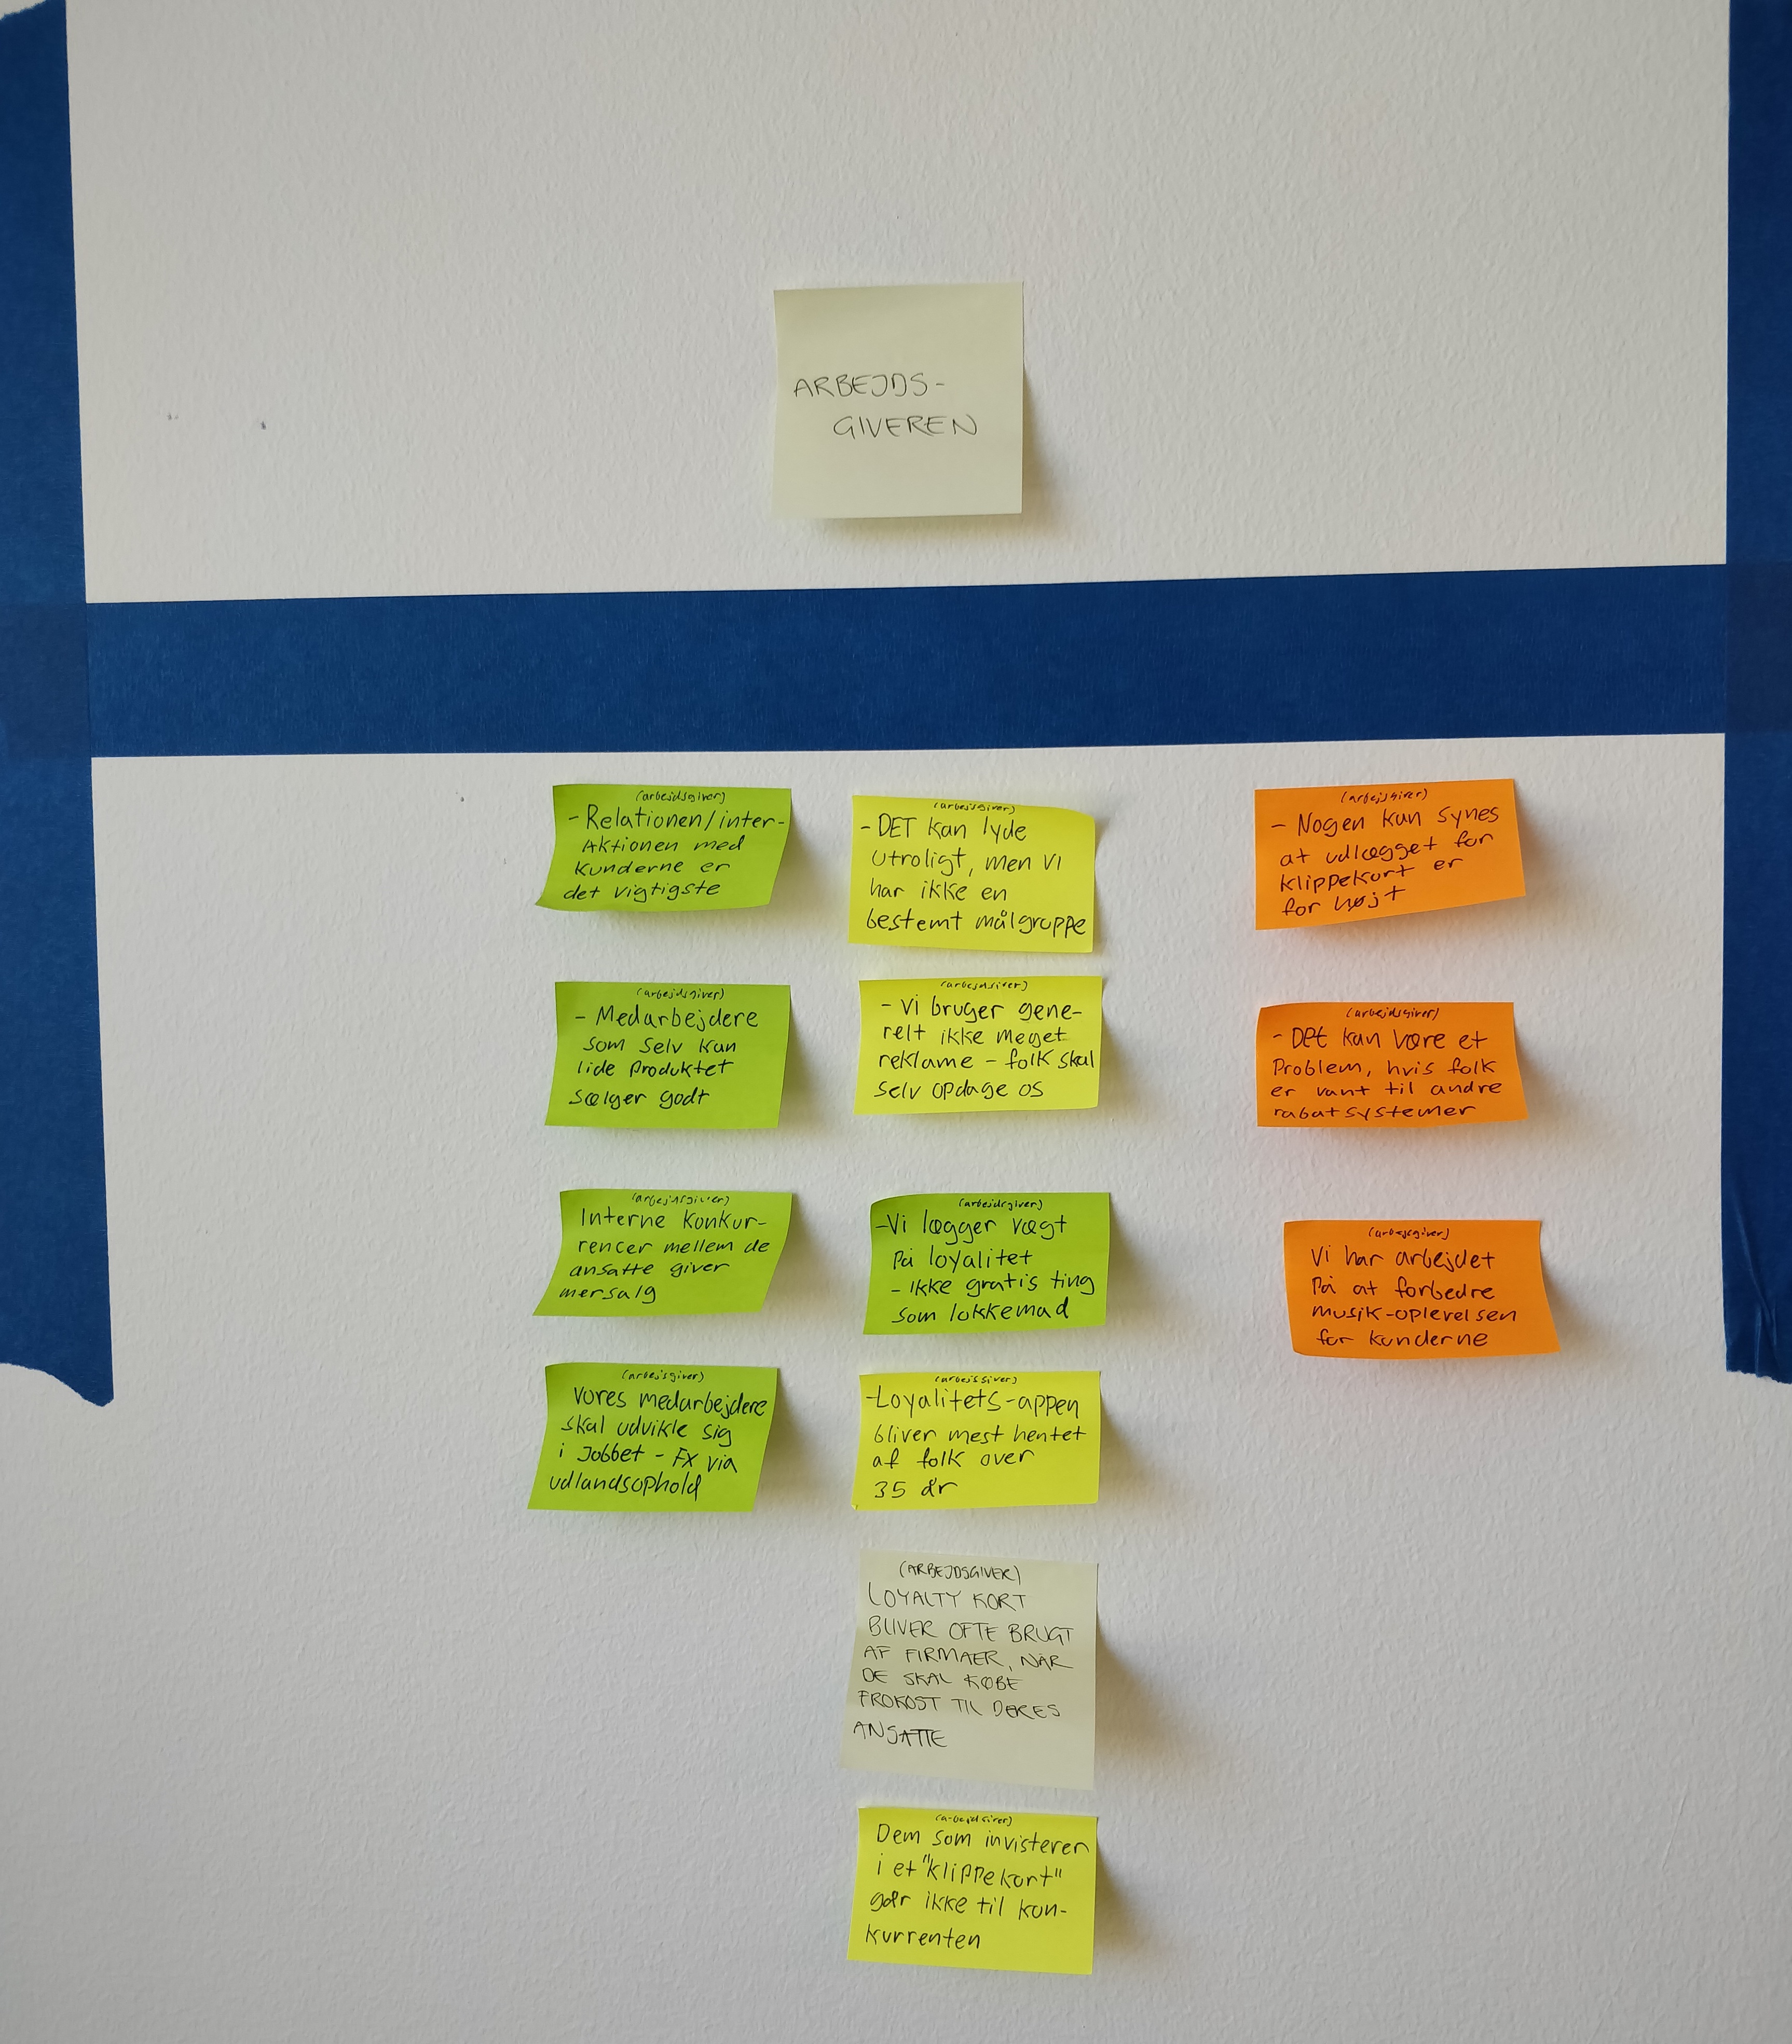 ARBEJDS-
GIVEREN
(arbejdsgiver)
- Relationen/inter-
Aktionen med
kunderne er
det vigtigste
(arbejdsgiver)
- Medarbejdere
som selv kan
lide produktet
sælger godt
(arbejdsgiver)
Interne konkur-
rencer mellem de
ansatte giver
mersalg
(arbejsgiver)
Vores medarbejdere
skal udvikle sig
i Jobbet - Fx via
udlandsophold
(arbejdsgiver)
- DET kan lyde
utroligt, men vi
har ikke en
bestemt målgruppe
(arbejdsgiver)
- Vi bruger gene-
relt ikke meget
reklame - folk skal
selv opdage os
(arbejdsgiver)
- Vi lægger vægt
På loyalitet
- ikke gratis ting
som lokkemad
(arbejsgiver)
- Loyalitets-appen
bliver mest hentet
af folk over
35 år
(ARBEJDSGIVER)
LOYALTY KORT
BLIVER OFTE BRUGT
AF FIRMAER, NÅR
DE SKAL KØBE
FROKOST TIL DERES
ANSATTE
(arbejdsgiver)
Dem som invisterer
i et "klippekort"
går ikke til kon-
kurrenten
(arbejsgiver)
- Nogen kan synes
at udlægget for
klippekort er
for højt
(arbejdsgiver)
- Det kan være et
Problem, hvis folk
er vant til andre
rabatsystemer
(arbejsgiver)
Vi har arbejdet
På at forbedre
musik-oplevelsen
for kunderne